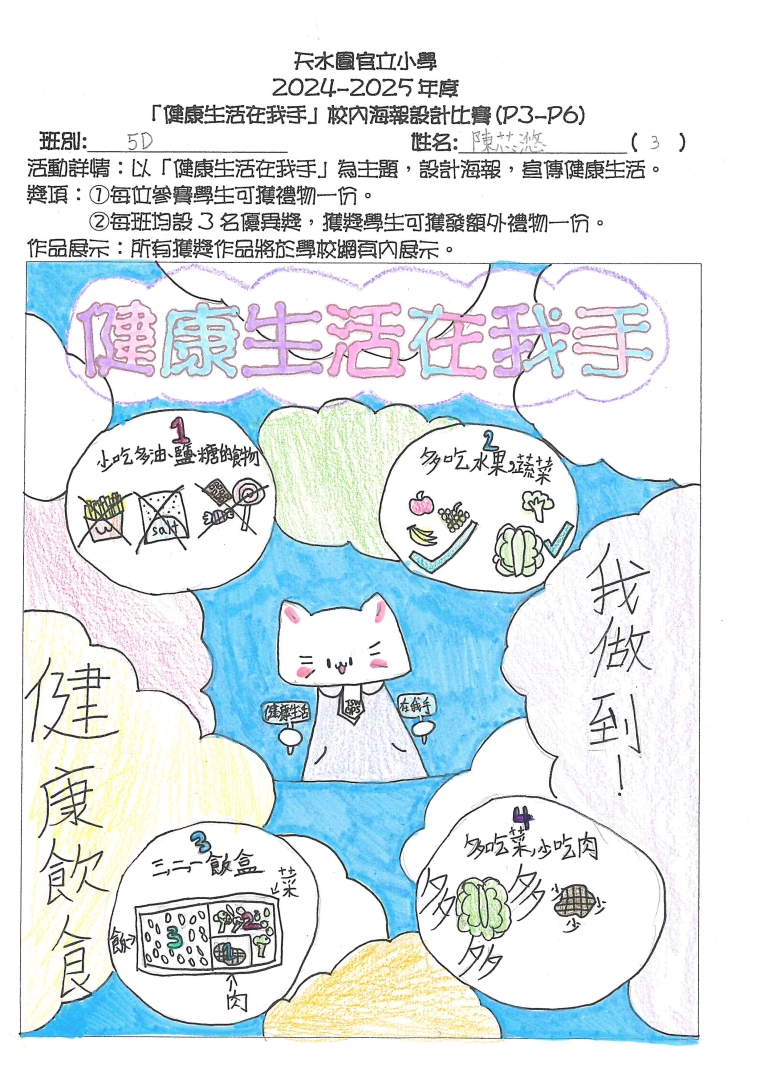 天水圍官立小學
2024-2025年度
「健康生活在我手」校內海報設計比賽(P3-P6)
班別: 5D 姓名: 陳芯悠 ( 3 )
活動詳情：以「健康生活在我手」為主題，設計海報，宣傳健康生活。
獎項：①每位參賽學生可獲禮物一份。
②每班均設3名優異獎，獲獎學生可獲發額外禮物一份。
作品展示：所有獲獎作品將於學校網頁內展示。
健康生活在我手
1
少吃多油、鹽、糖的食物
salt
2
多吃水果、蔬菜
我做到！
健康生活
在我手
健康飲食
3
三二一飯盒
菜
飯
3
2
1
肉
4
多吃菜，少吃肉
多 多
多
少 少
少